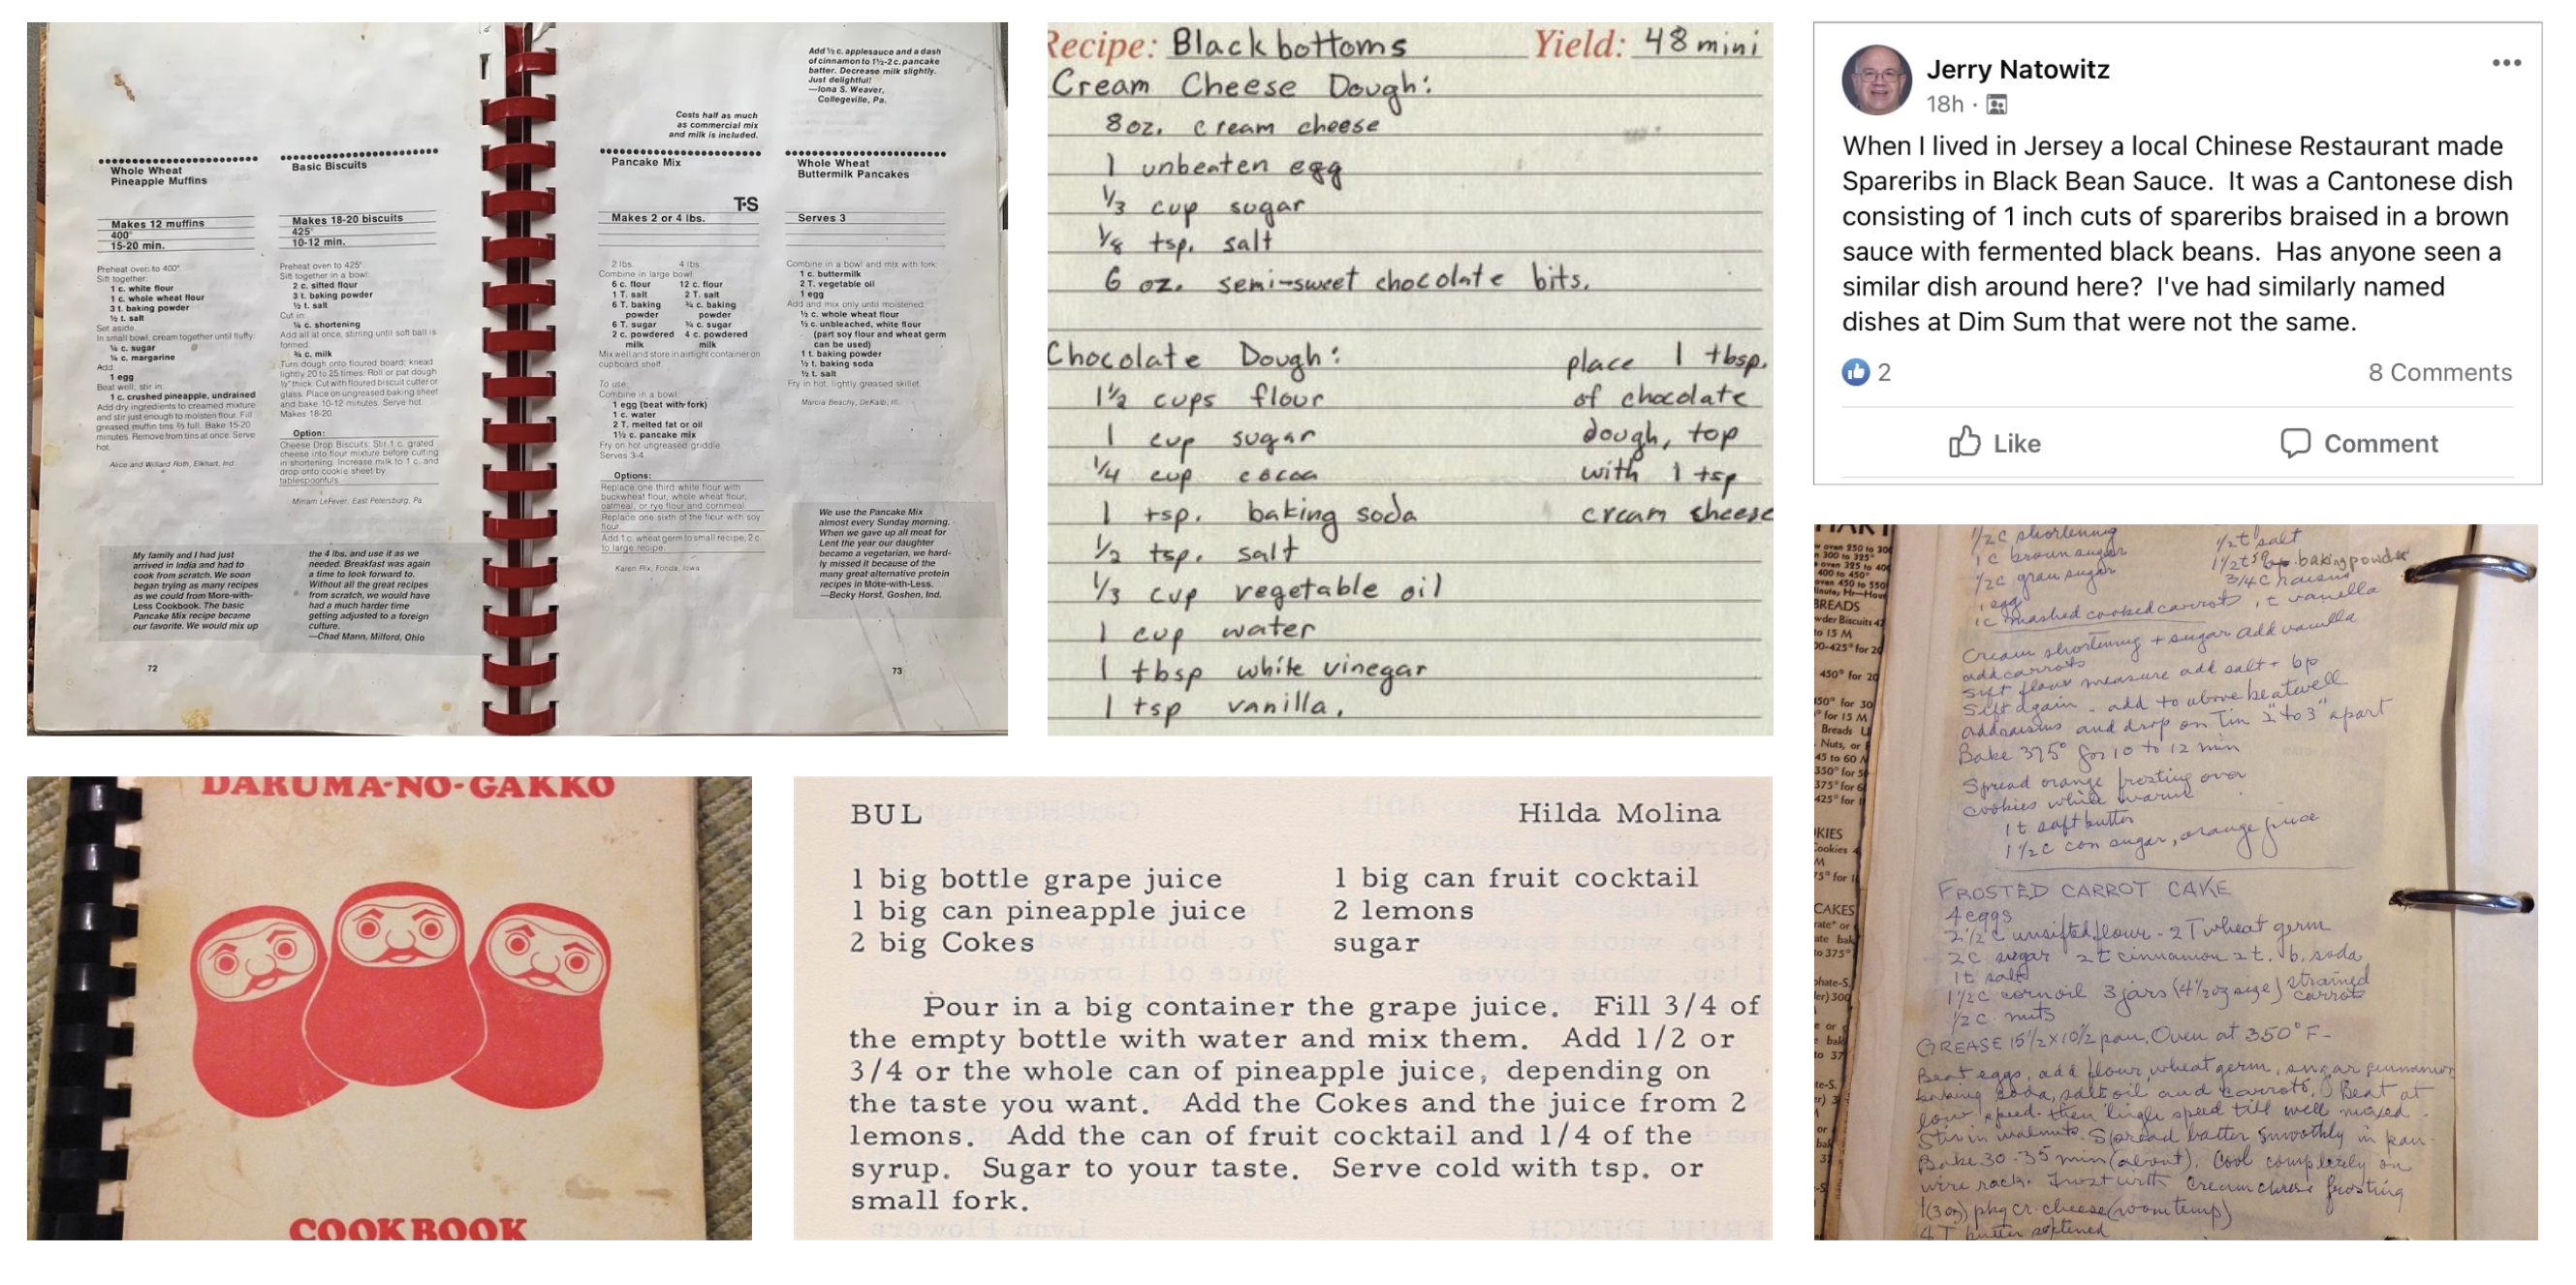 Whole Wheat
Pineapple Muffins
Makes 12 muffins
400°
15-20 min.
Preheat oven to 400°.
Sift together:
1 c. white flour
1 c. whole wheat flour
3 t. baking powder
½ t. salt
Set aside.
In small bowl, cream together until fluffy:
¼ c. sugar
¼ c. margarine
Add:
1 egg
Beat well; stir in:
1 c. crushed pineapple, undrained
Add dry ingredients to creamed mixture
and stir just enough to moisten flour. Fill
greased muffin tins ⅔ full. Bake 15-20
minutes. Remove from tins at once. Serve
hot.
Alice and Willard Roth, Elkhart, Ind.
Basic Biscuits
Makes 18-20 biscuits
425°
10-12 min.
Preheat oven to 425°.
Sift together in a bowl:
2 c. sifted flour
3 t. baking powder
½ t. salt
Cut in:
¼ c. shortening
Add all at once, stirring until soft ball is
formed:
¾ c. milk
Turn dough onto floured board; knead
lightly 20 to 25 times. Roll or pat dough
½" thick. Cut with floured biscuit cutter or
glass. Place on ungreased baking sheet
and bake 10-12 minutes. Serve hot.
Makes 18-20.
Option:
Cheese Drop Biscuits: Stir 1 c. grated
cheese into flour mixture before cutting
in shortening. Increase milk to 1 c. and
drop onto cookie sheet by
tablespoonfuls.
Miriam LeFever, East Petersburg, Pa.
My family and I had just
arrived in India and had to
cook from scratch. We soon
began trying as many recipes
as we could from More-with-
Less Cookbook. The basic
Pancake Mix recipe became
our favorite. We would mix up
the 4 lbs. and use it as we
needed. Breakfast was again
a time to look forward to.
Without all the great recipes
from scratch, we would have
had a much harder time
getting adjusted to a foreign
culture.
—Chad Mann, Milford, Ohio
72
Costs half as much
as commercial mix
and milk is included.
Pancake Mix
T·S
Makes 2 or 4 lbs.
2 lbs. 4 lbs.
Combine in large bowl:
6 c. flour 12 c. flour
1 T. salt 2 T. salt
6 T. baking ¾ c. baking
powder powder
6 T. sugar ¾ c. sugar
2 c. powdered 4 c. powdered
milk milk
Mix well and store in airtight container on
cupboard shelf.
To use:
Combine in a bowl:
1 egg (beat with fork)
1 c. water
2 T. melted fat or oil
1½ c. pancake mix
Fry on hot ungreased griddle.
Serves 3-4
Options:
Replace one third white flour with
buckwheat flour, whole wheat flour,
oatmeal, or rye flour and cornmeal.
Replace one sixth of the flour with soy
flour.
Add 1 c. wheat germ to small recipe, 2 c.
to large recipe.
Karen Rix, Fonda, Iowa
Add ½ c. applesauce and a dash
of cinnamon to 1½-2 c. pancake
batter. Decrease milk slightly.
Just delightful!
—Iona S. Weaver,
Collegeville, Pa.
Whole Wheat
Buttermilk Pancakes
Serves 3
Combine in a bowl and mix with fork:
1 c. buttermilk
2 T. vegetable oil
1 egg
Add and mix only until moistened:
½ c. whole wheat flour
½ c. unbleached, white flour
(part soy flour and wheat germ
can be used)
1 t. baking powder
½ t. baking soda
½ t. salt
Fry in hot, lightly greased skillet.
Marcia Beachy, DeKalb, Ill.
We use the Pancake Mix
almost every Sunday morning.
When we gave up all meat for
Lent the year our daughter
became a vegetarian, we hard-
ly missed it because of the
many great alternative protein
recipes in More-with-Less.
—Becky Horst, Goshen, Ind.
73
Recipe: Blackbottoms Yield: 48 mini
Cream Cheese Dough:
8 oz. cream cheese
1 unbeaten egg
⅓ cup sugar
⅛ tsp. salt
6 oz. semi-sweet chocolate bits.
Chocolate Dough:
1½ cups flour
1 cup sugar
¼ cup cocoa
1 tsp. baking soda
½ tsp. salt
⅓ cup vegetable oil
1 cup water
1 tbsp white vinegar
1 tsp vanilla.
place 1 tbsp.
of chocolate
dough, top
with 1 tsp
cream cheese
Jerry Natowitz
18h ·
When I lived in Jersey a local Chinese Restaurant made
Spareribs in Black Bean Sauce. It was a Cantonese dish
consisting of 1 inch cuts of spareribs braised in a brown
sauce with fermented black beans. Has anyone seen a
similar dish around here? I've had similarly named
dishes at Dim Sum that were not the same.
2
8 Comments
Like
Comment
DARUMA-NO-GAKKO
COOKBOOK
BUL Hilda Molina
1 big bottle grape juice 1 big can fruit cocktail
1 big can pineapple juice 2 lemons
2 big Cokes sugar
Pour in a big container the grape juice. Fill 3/4 of
the empty bottle with water and mix them. Add 1/2 or
3/4 or the whole can of pineapple juice, depending on
the taste you want. Add the Cokes and the juice from 2
lemons. Add the can of fruit cocktail and 1/4 of the
syrup. Sugar to your taste. Serve cold with tsp. or
small fork.
½ c shortening ½ t salt
1 c brown sugar 1½ t baking powder
½ c gran sugar 3/4 c raisins
1 egg
1 c mashed cooked carrots 1 t vanilla
Cream shortening + sugar add vanilla
add carrots
Sift flour measure add salt + bp
Sift again - add to above beat well
add raisins and drop on tin 2" to 3" apart
Bake 375° for 10 to 12 min
Spread orange frosting over
cookies while warm
1 t soft butter
1½ c con sugar, orange juice
FROSTED CARROT CAKE
4 eggs
2½ c unsifted flour - 2 T wheat germ
2 c sugar 2 t cinnamon 2 t. b. soda
1 t salt
1½ c corn oil 3 jars (4½ oz size) strained
carrots
½ c nuts
GREASE 15½ x 10½ pan. Oven at 350° F-
Beat eggs, add flour, wheat germ, sugar cinnamon
baking soda, salt oil and carrots. Beat at
low speed then high speed till well mixed.
Stir in walnuts. Spread batter smoothly in pan.
Bake 30-35 min (about). Cool completely on
wire rack. Frost with cream cheese frosting
1 (3 oz) pkg cr. cheese (room temp)
4 T butter softened